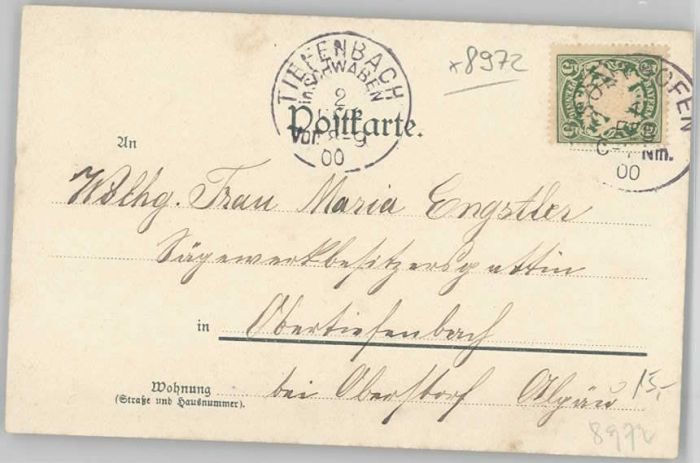 x8972
TIEFENBACH
in SCHWABEN
2
Vor. 8-9
00
OFEN
Nm.
00
5
Postkarte.
An
Wohlg. Frau Maria Engstler
Sägewerkbesitzersgattin
in Obertiefenbach
Wohnung
(Straße und Hausnummer).
bei Oberstorf Algäu
15,-
8972